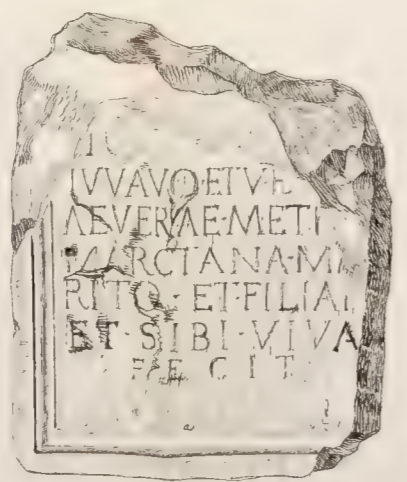 IVVAVO·ET·V
AEVERAE·METI
MARCIANA·M
RITO·ET·FILIAI
ET·SIBI·VIVA
FECIT